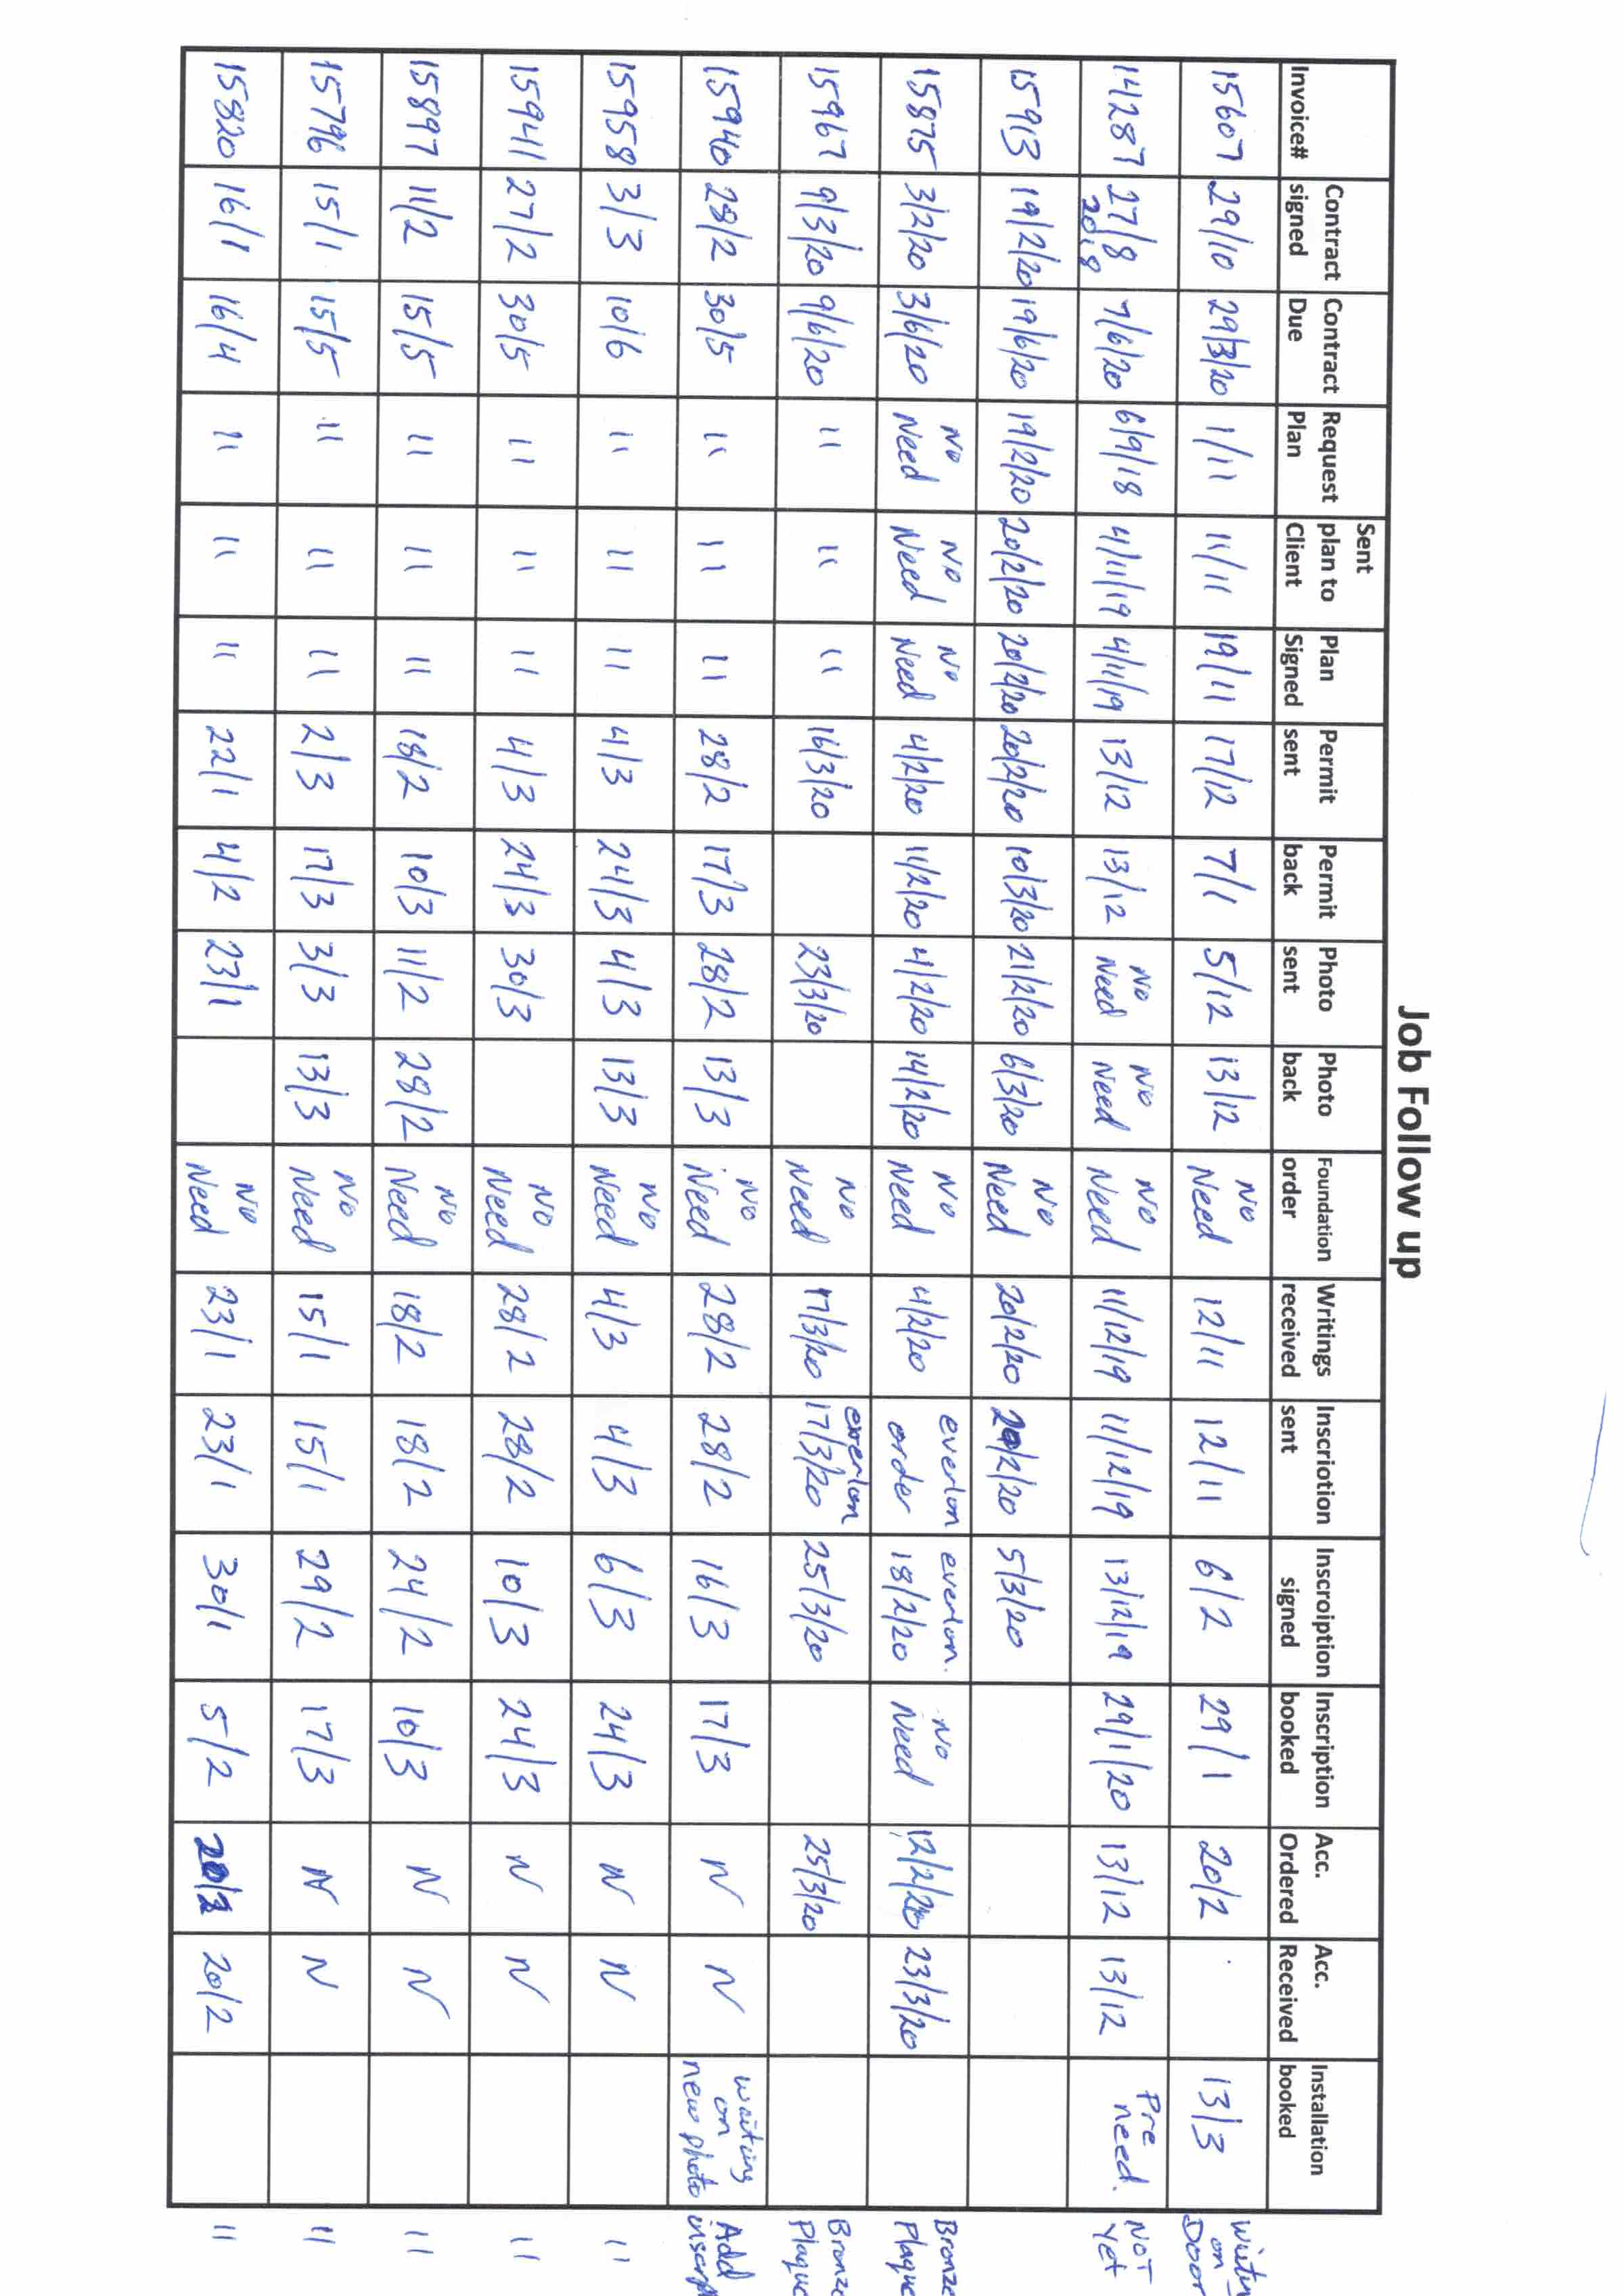 Job Follow up
Invoice# Contract signed Contract Due Request Plan Sent plan to Client Plan Signed Permit sent Permit back Photo sent Photo back Foundation order Writings received Inscriotion sent Inscroiption signed Inscription booked Acc. Ordered Acc. Received Installation booked
15607 29/10 29/3/20 1/11 11/11 19/11 17/12 7/1 5/12 13/12 No Need 12/11 12/11 6/2 29/1 20/2 13/3 on Door
14287 27/8 2018 7/6/20 6/9/18 4/11/19 4/11/19 13/12 13/12 No Need No Need No Need 11/12/19 11/12/19 13/12/19 29/1/20 13/12 13/12 Pre need. NOT Yet
15913 19/2/20 19/6/20 19/2/20 20/2/20 20/2/20 20/2/20 10/3/20 21/2/20 6/3/20 No Need 20/2/20 20/2/20 5/3/20
15875 3/2/20 3/6/20 No Need No Need No Need 4/2/20 11/2/20 4/2/20 14/2/20 No Need 4/2/20 everlon order everlon. 18/2/20 No Need 12/2/20 23/3/20 Bronze Plaque
15967 9/3/20 9/6/20 11 11 11 16/3/20 23/3/20 No Need 17/3/20 everlon 17/3/20 25/3/20 25/3/20 Bronze Plaque
15940 28/2 30/5 11 11 11 28/2 17/3 28/2 13/3 No Need 28/2 28/2 16/3 17/3 N N waiting on new photo Add inscrp
15958 3/3 10/6 11 11 11 4/3 24/3 4/3 13/3 No Need 4/3 4/3 6/3 24/3 N N 11
15941 27/2 30/5 11 11 11 4/3 24/3 30/3 No Need 28/2 28/2 10/3 24/3 N N 11
15897 11/2 15/5 11 11 11 18/2 10/3 11/2 28/2 No Need 18/2 18/2 24/2 10/3 N N 11
15796 15/1 15/5 11 11 11 2/3 17/3 3/3 13/3 No Need 15/1 15/1 29/2 17/3 N N 11
15820 16/1 16/4 11 11 11 22/1 4/2 23/1 No Need 23/1 23/1 30/1 5/2 20/2 11